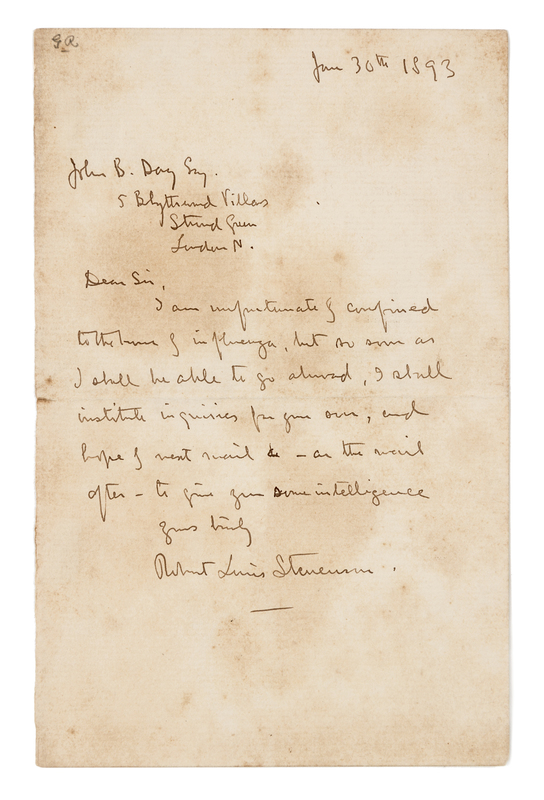 Jan 30th 1893
John B. Day Esq.
5 Blythswood Villas
Stroud Green
London N.
Dear Sir,
I am unfortunately confined
to the house by influenza, but so soon as
I shall be able to go abroad, I shall
institute inquiries for your son, and
hope by next mail – or the mail
after – to give you some intelligence
yours truly
Robert Louis Stevenson.